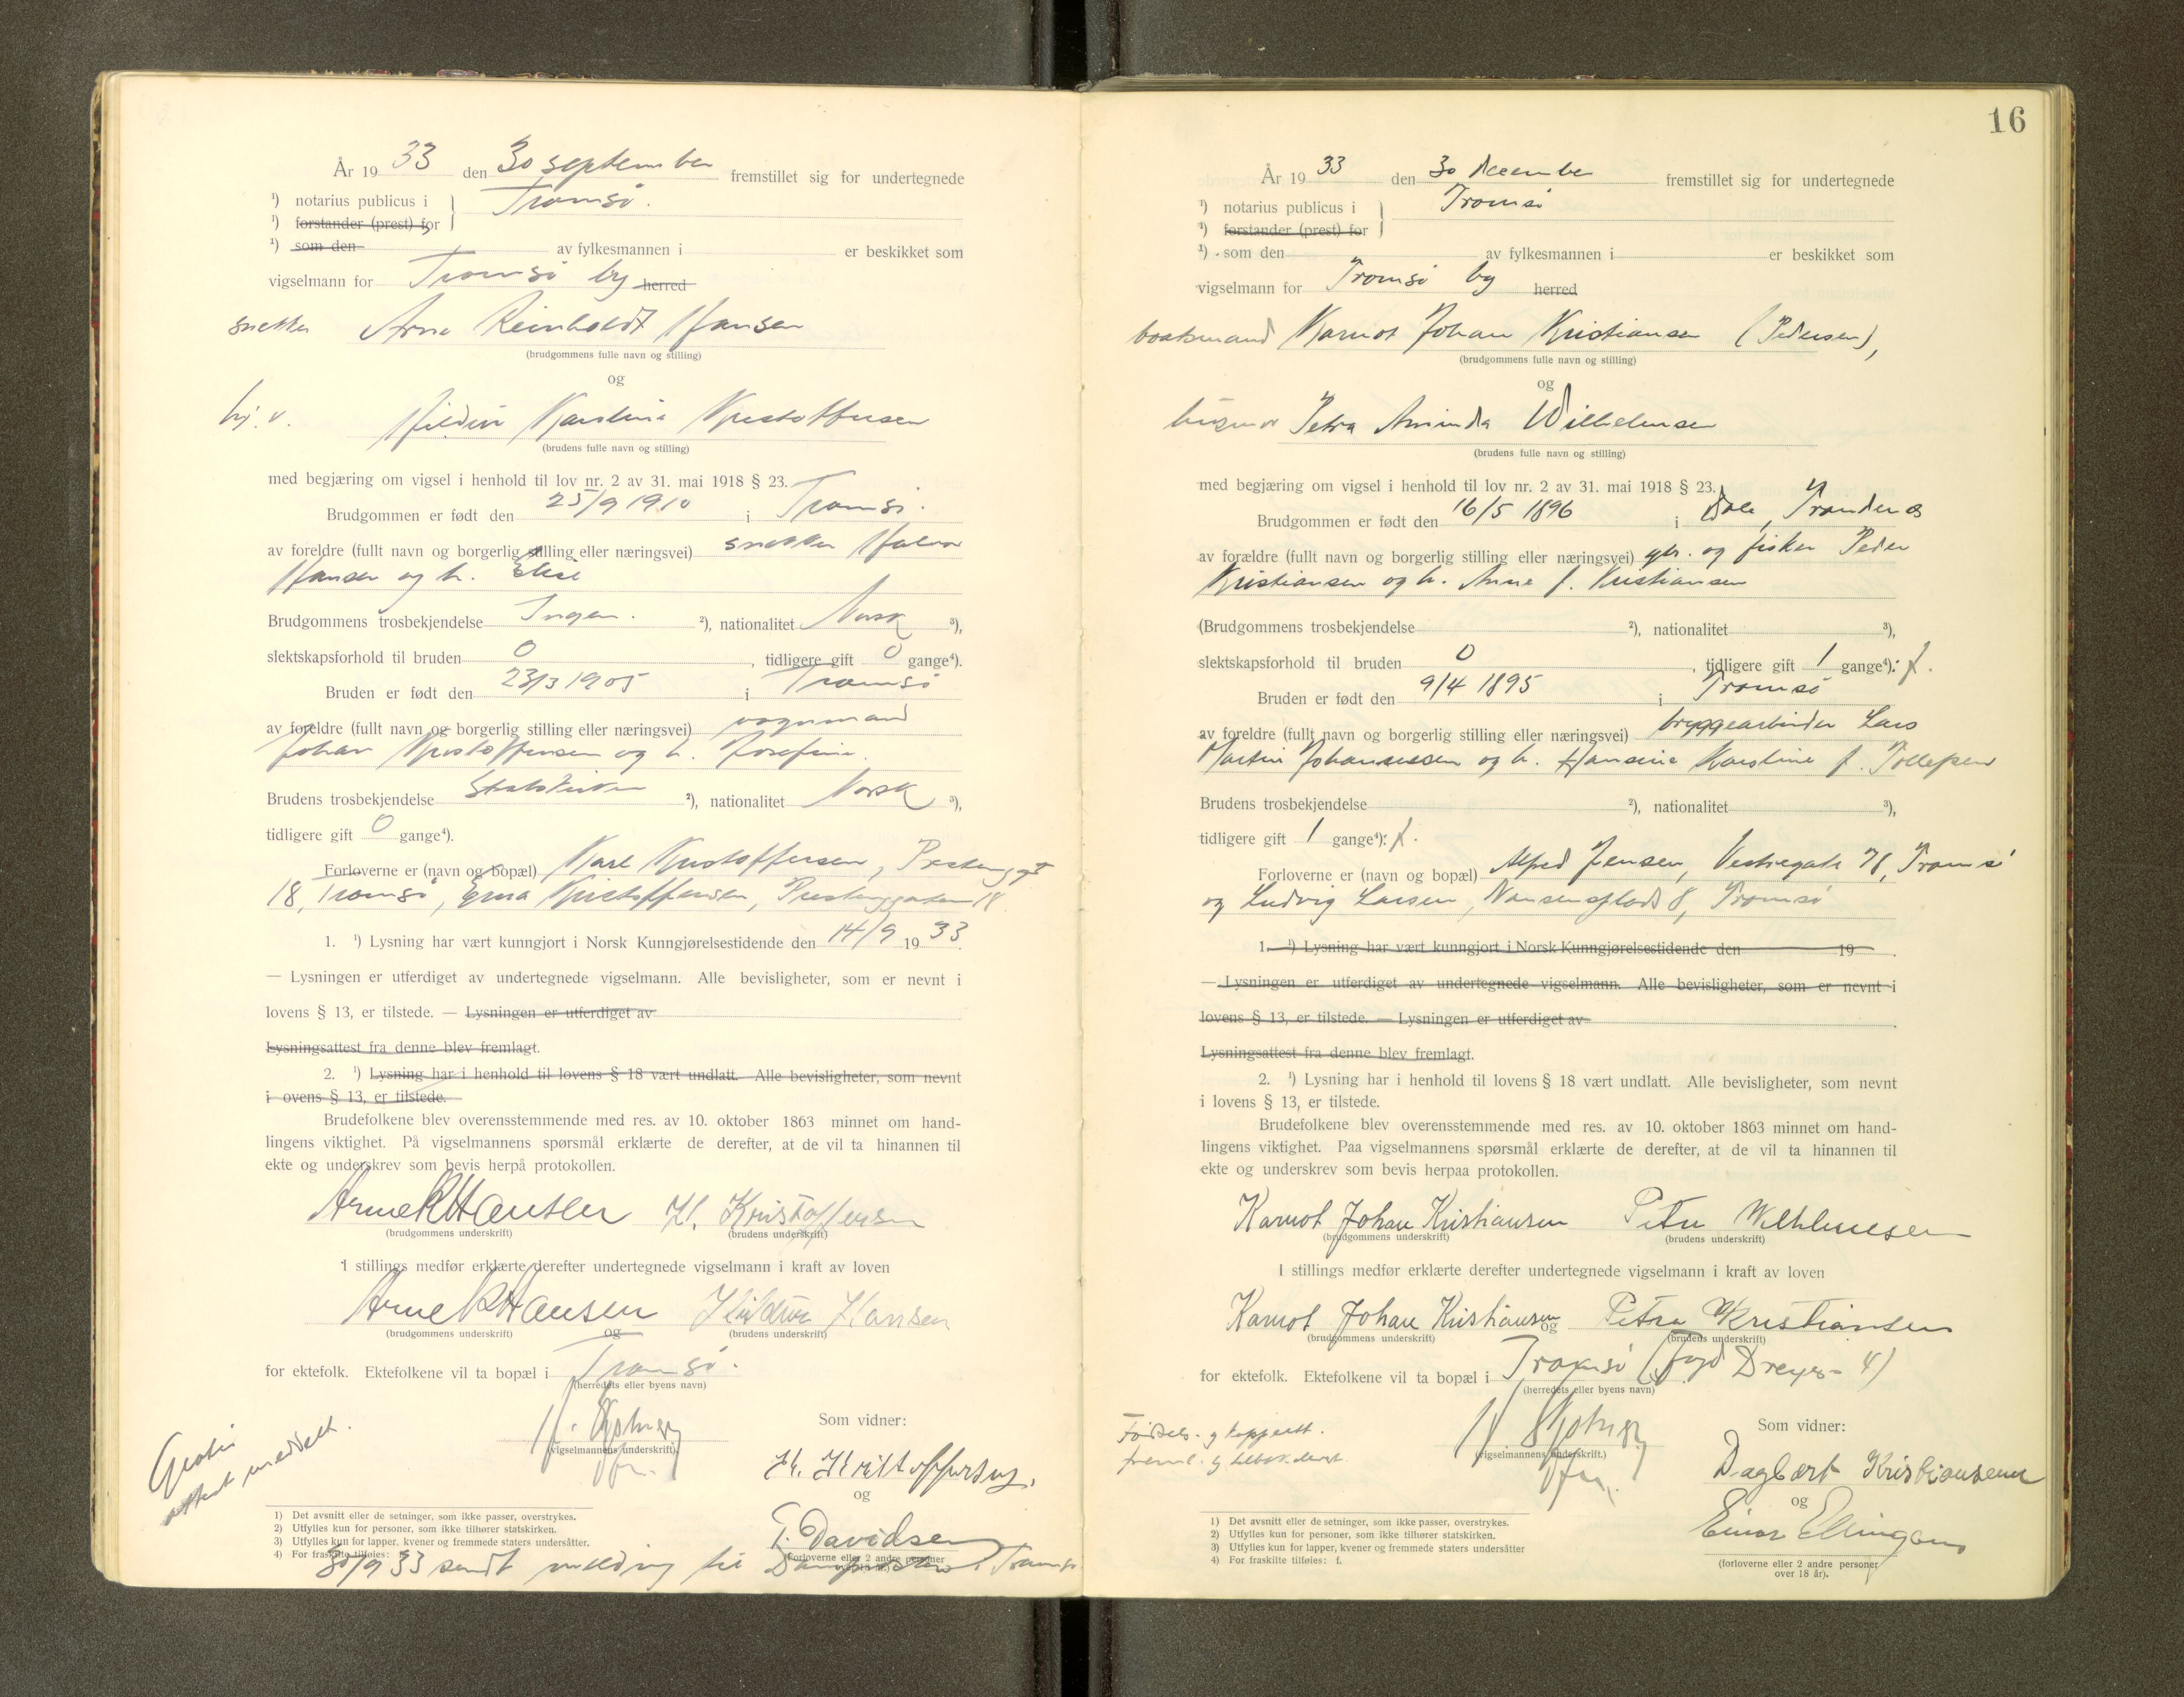 År 19 33 den 30 september fremstillet sig for undertegnede
¹) notarius publicus i Tromsø.
¹) forstander (prest) for
¹) som den av fylkesmannen i er beskikket som
vigselmann for Tromsø by herred
snekker Arne Reinholdt Hansen
(brudgommens fulle navn og stilling)
og
hj. v. Hildur Karoline Kristoffersen
(brudens fulle navn og stilling)
med begjæring om vigsel i henhold til lov nr. 2 av 31. mai 1918 § 23.
Brudgommen er født den 25/9 1910 i Tromsø.
av foreldre (fullt navn og borgerlig stilling eller næringsvei) snekker Halvor
Hansen og h. Elise
Brudgommens trosbekjendelse Ingen. ²), nationalitet Norsk ³),
slektskapsforhold til bruden 0, tidligere gift 0 gange⁴).
Bruden er født den 23/3 1905 i Tromsø
av foreldre (fullt navn og borgerlig stilling eller næringsvei) vognmand
Johan Kristoffersen og h. Josefine.
Brudens trosbekjendelse Statskirken ²), nationalitet Norsk ³),
tidligere gift 0 gange⁴).
Forloverne er (navn og bopæl) Karl Kristoffersen, Prestenggt
18, Tromsø, Erna Kristoffersen, Prestenggaten 18
1. ¹) Lysning har vært kunngjort i Norsk Kunngjørelsestidende den 14/9 19 33.
— Lysningen er utferdiget av undertegnede vigselmann. Alle bevisligheter, som er nevnt i
lovens § 13, er tilstede. — Lysningen er utferdiget av
Lysningsattest fra denne blev fremlagt.
2. ¹) Lysning har i henhold til lovens § 18 vært undlatt. Alle bevisligheter, som nevnt
i ovens § 13, er tilstede.
Brudefolkene blev overensstemmende med res. av 10. oktober 1863 minnet om hand-
lingens viktighet. På vigselmannens spørsmål erklærte de derefter, at de vil ta hinannen til
ekte og underskrev som bevis herpå protokollen.
Arne R Hansen H. Kristoffersen
(brudgommens underskrift) (brudens underskrift)
I stillings medfør erklærte derefter undertegnede vigselmann i kraft av loven
Arne R Hansen Hildur Hansen
(brudgommens underskrift) og (brudens underskrift)
for ektefolk. Ektefolkene vil ta bopæl i Tromsø.
(herredets eller byens navn)
(vigselmannens underskrift)
Som vidner:
Gratis
attest meddelt.
K. Kristoffersen.
og
T. Davidsen
(forloverne eller 2 andre personer
1) Det avsnitt eller de setninger, som ikke passer, overstrykes.
2) Utfylles kun for personer, som ikke tilhører statskirken.
3) Utfylles kun for lapper, kvener og fremmede staters undersåtter.
4) For fraskilte tilføies:
30/9 33 sendt melding til Tromsø
16
År 19 33 den 30 december fremstillet sig for undertegnede
¹) notarius publicus i Tromsø
¹) forstander (prest) for
¹) som den av fylkesmannen i er beskikket som
vigselmann for Tromsø by herred
baatsmand Karnot Johan Kristiansen (Pedersen),
(brudgommens fulle navn og stilling)
og
husmor Petra Aminda Wilhelmsen
(brudens fulle navn og stilling)
med begjæring om vigsel i henhold til lov nr. 2 av 31. mai 1918 § 23.
Brudgommen er født den 16/5 1896 i Dale, Trondenes
av forældre (fullt navn og borgerlig stilling eller næringsvei) gbr. og fisker Peder
Kristiansen og h. Anne f. Kristiansen
(Brudgommens trosbekjendelse ²), nationalitet ³),
slektskapsforhold til bruden 0, tidligere gift 1 gange⁴): f.
Bruden er født den 9/4 1895 i Tromsø
av foreldre (fullt navn og borgerlig stilling eller næringsvei) bryggearbeider Lars
Martin Johannessen og h. Hansine Karoline f. Tollefsen
Brudens trosbekjendelse ²), nationalitet ³),
tidligere gift 1 gange⁴): f.
Forloverne er (navn og bopæl) Alfred Jensen, Vestregate 78, Tromsø
og Ludvig Larsen, Nansensplads 8, Tromsø
1. ¹) Lysning har vært kunngjort i Norsk Kunngjørelsestidende den 19 .
— Lysningen er utferdiget av undertegnede vigselmann. Alle bevisligheter, som er nevnt i
lovens § 13, er tilstede. — Lysningen er utferdiget av
Lysningsattest fra denne blev fremlagt.
2. ¹) Lysning har i henhold til lovens § 18 vært undlatt. Alle bevisligheter, som nevnt
i lovens § 13, er tilstede.
Brudefolkene blev overensstemmende med res. av 10. oktober 1863 minnet om hand-
lingens viktighet. Paa vigselmannens spørsmål erklærte de derefter, at de vil ta hinannen til
ekte og underskrev som bevis herpaa protokollen.
Karnot Johan Kristiansen Petra Wilhelmsen
(brudgommens underskrift) (brudens underskrift)
I stillings medfør erklærte derefter undertegnede vigselmann i kraft av loven
Karnot Johan Kristiansen og Petra Kristiansen
(brudgommens underskrift) (brudens underskrift)
for ektefolk. Ektefolkene vil ta bopæl i Tromsø (Fogd Dreyers 4)
(herredets eller byens navn)
Fødsels- og koppeatt.
freml. og
(vigselmannens underskrift.)
Som vidner:
Dagbart Kristiansen
og
Einar Ellingsen
(forloverne eller 2 andre personer
over 18 år).
1) Det avsnitt eller de setninger, som ikke passer, overstrykes.
2) Utfylles kun for personer, som ikke tilhører statskirken.
3) Utfylles kun for lapper, kvener og fremmede staters undersåtter
4) For fraskilte tilføies: f.